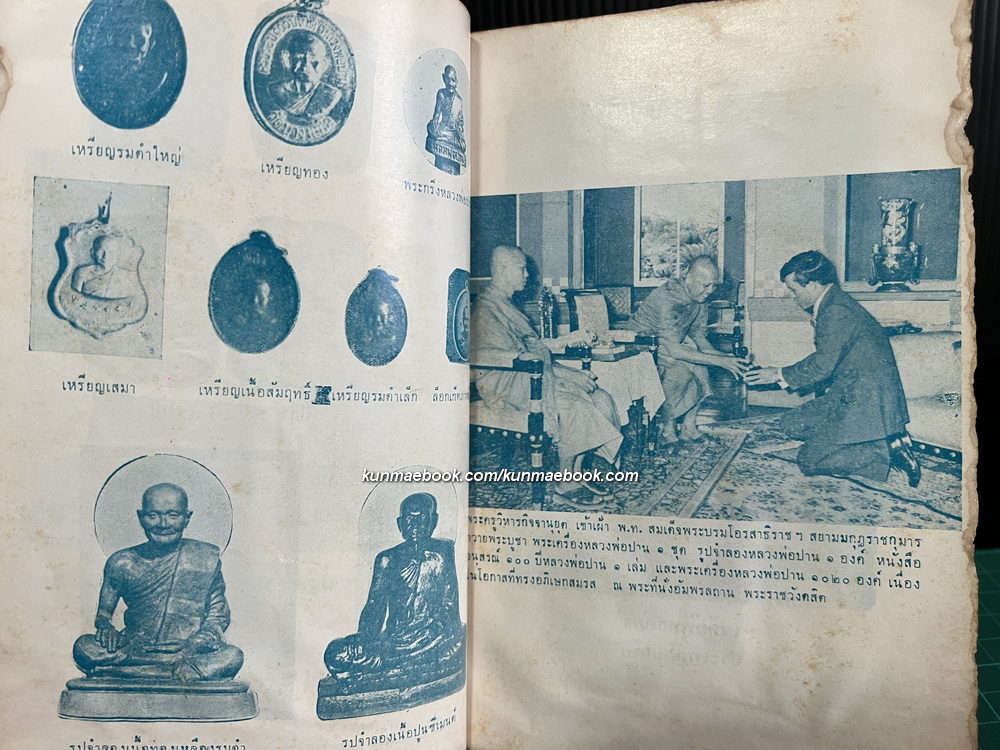 เหรียญรมดำใหญ่
เหรียญทอง
พระกริ่งหลวงพ่อ
เหรียญเสมา
เหรียญเนื้อสัมฤทธิ์
เหรียญรมดำเล็ก
ล็อกเก็ต
kunmaebook.com/kunmaebook.com
รูปจำลองเนื้อปูนซีเมนต์
รูปจำลองเนื้อทองเหลืองรมดำ
พระครูวิหารกิจจานุยุต เข้าเฝ้า พ.ท. สมเด็จพระบรมโอรสาธิราช ฯ สยามมกุฎราชกุมาร
ถวายพระบูชา พระเครื่องหลวงพ่อปาน ๑ ชุด รูปจำลองหลวงพ่อปาน ๑ องค์ หนังสือ
อนุสรณ์ ๑๐๐ ปีหลวงพ่อปาน ๑ เล่ม และพระเครื่องหลวงพ่อปาน ๑๐๒๐ องค์ เนื่อง
ในโอกาสที่ทรงอภิเษกสมรส ณ พระที่นั่งอัมพรสถาน พระราชวังดุสิต